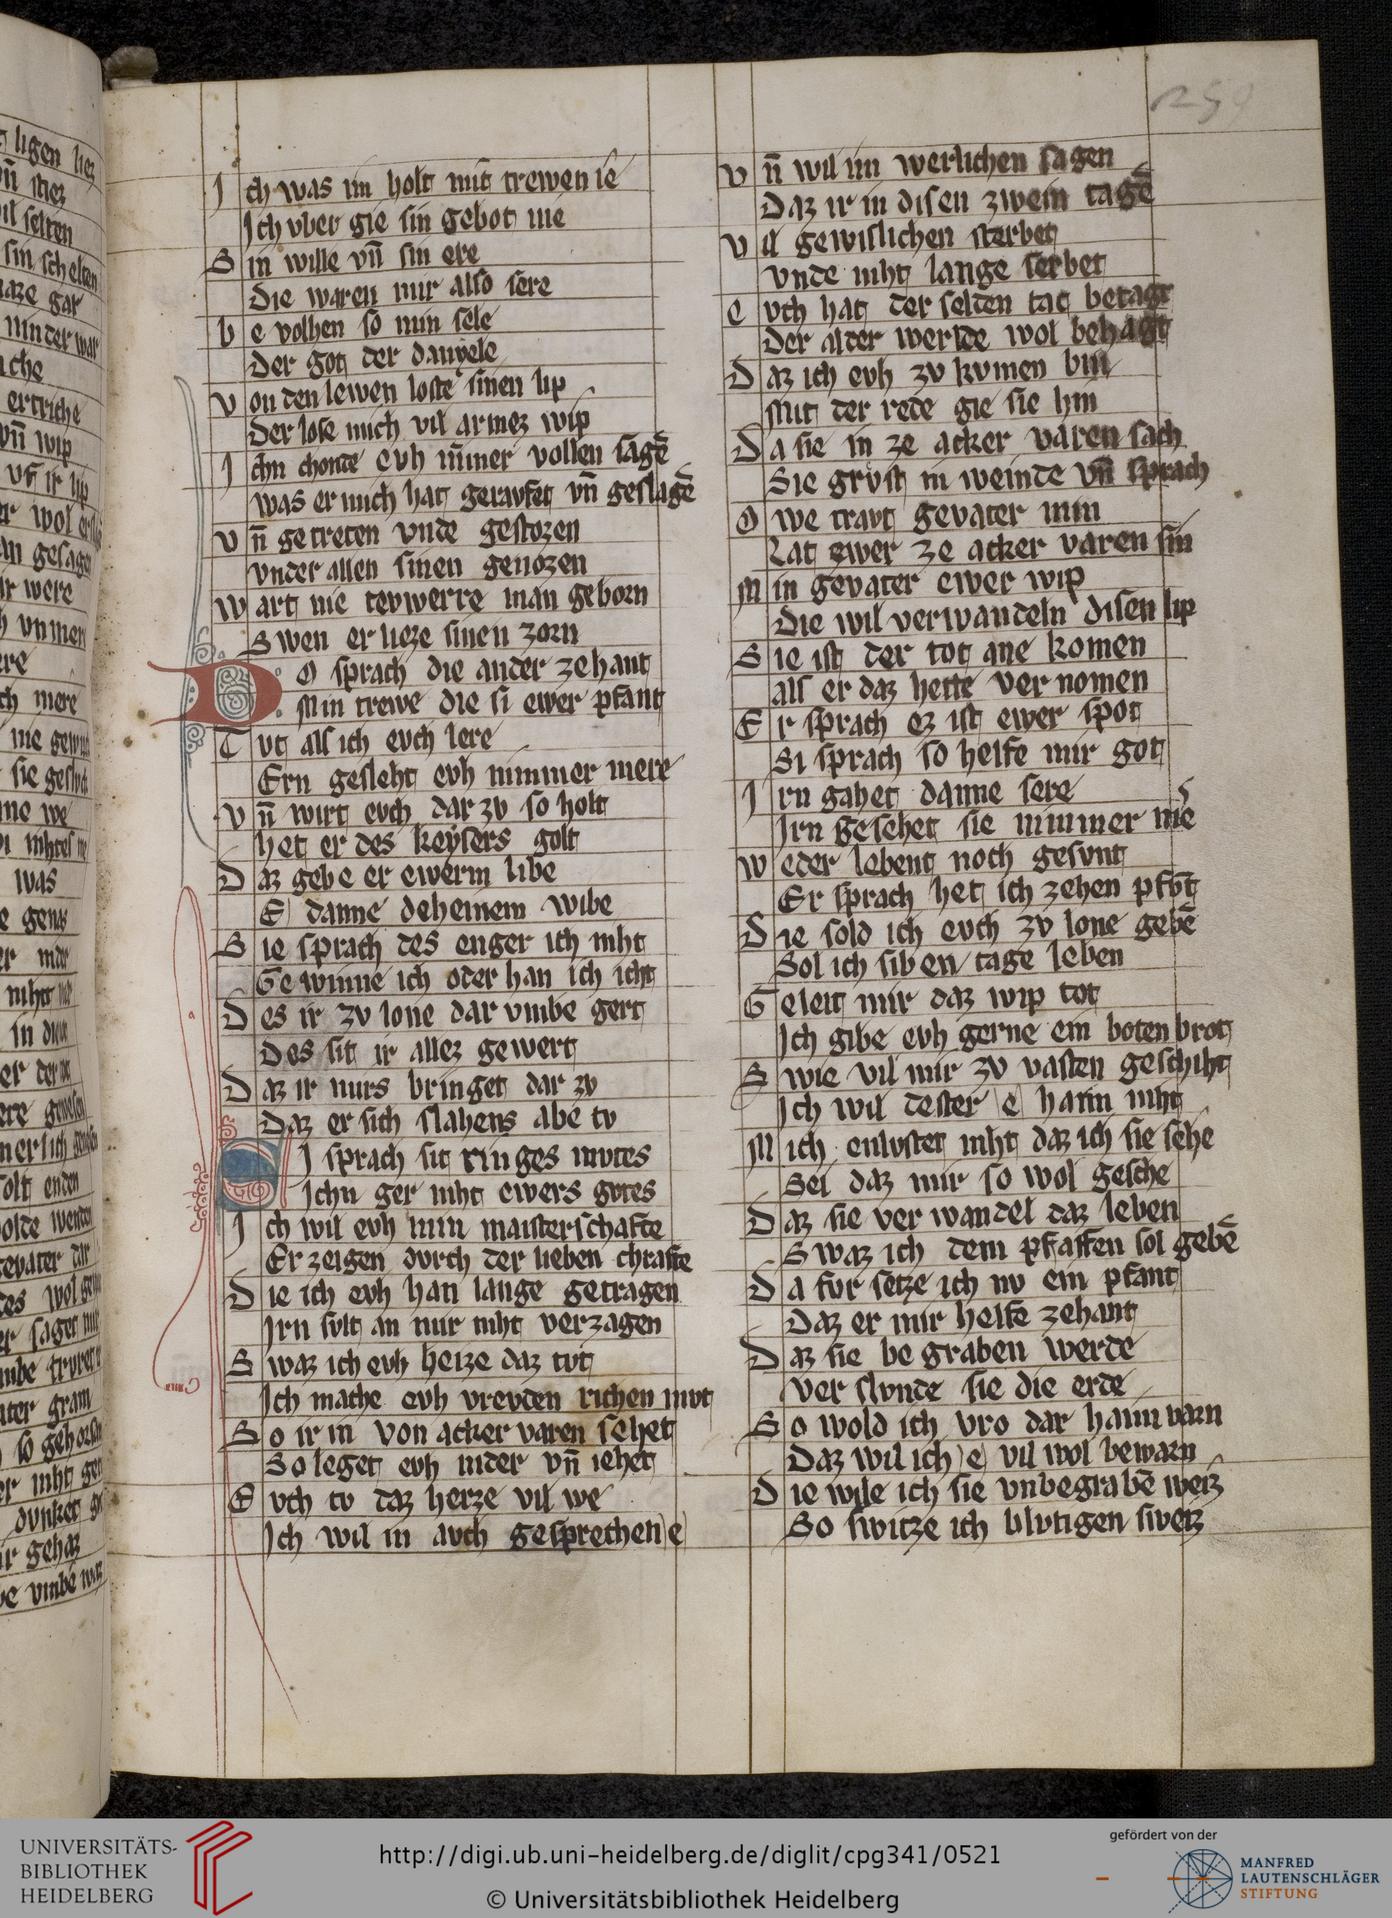 259
Ich was im holt mit trewen ie
Ich vber gie sin gebot nie
Sin wille vn̄ sin ere
Die waren mir also sere
bevolhen so min sele
Der got der danyele
Von den lewen loste sinen lip
Der lose mich vil armez wip
Ichn chonde evh nim̄er vollen sagē
Was er mich hat geravfet vn̄ geslagē
Vn̄ getreten vnde gestozen
Vnder allen sinen genozen
Wart nie tevwerre man geborn
Swen er lieze sinen zorn
Do sprach die ander zehant
Min trewe die si ewer pfant
Tvt als ich evch lere
Ern gesleht evh nimmer mere
Vn̄ wirt evch dar zv so holt
het er des keysers golt
Daz gebe er ewerm libe
E danne deheinem wibe
Sie sprach des enger ich niht
Gewinne ich oder han ich icht
Des ir zv lone dar vmbe gert
Des sit ir allez gewert
Daz ir nurs bringet dar zv
Daz er sich slahens abe tv
Si sprach sit ringes mvtes
Ichn ger niht ewers gvtes
Ich wil evh min maisterschafte
Erzeigen dvrch der lieben chrafte
Die ich evh han lange getragen
Irn svlt an mir niht verzagen
Swaz ich evh heize daz tvt
Ich mache evh vrevden richen mvt
So ir in von acker varen sehet
So leget evh nider vn̄ iehet
Evch tv daz herze vil we
Ich wil in avch gesprechen e
Vn̄ wil im werlichen sagen
Daz ir in disen zwein tagē
Vil gewislichen sterbet
Vnde niht lange serbet
Evch hat der selden tac betagt
Der alder werlde wol behagt
Daz ich evh zv kvmen bin
Mit der rede gie sie hin
Da sie in ze acker varen sach
Sie grvst in weinde vn̄ sprach
Owe travt gevater min
Lat ewer ze acker varen sin
Min gevater ewer wip
Die wil verwandeln disen lip
Sie ist der tot ane komen
als er daz hette vernomen
Er sprach ez ist ewer spot
Si sprach so helfe mir got
Irn gahet danne sere
Irn gesehet sie nimmer mē
Weder lebent noch gesvnt
Er sprach het ich zehen pfvt
Die sold ich evch zv lone gebē
Sol ich siben tage leben
Geleit mir daz wip tot
Ich gibe evh gerne ein boten brot
Swie vil mir zv vasten geschiht
Ich wil dester e haim niht
Mich enlvstet niht daz ich sie sehe
Sei daz mir so wol gesche
Daz sie verwandel daz leben
Swaz ich dem pfaffen sol gebē
Da fvr setze ich nv ein pfant
Daz er mir helfe zehant
Daz sie begraben werde
Verslvnde sie die erde
So wold ich vro dar haim varn
Daz wil ich e vil wol bewarn
Die wile ich sie vnbegrabē weiz
So switze ich blvtigen sweiz
UNIVERSITÄTS-
BIBLIOTHEK
HEIDELBERG
http://digi.ub.uni-heidelberg.de/diglit/cpg341/0521
© Universitätsbibliothek Heidelberg
gefördert von der
MANFRED
LAUTENSCHLÄGER
STIFTUNG